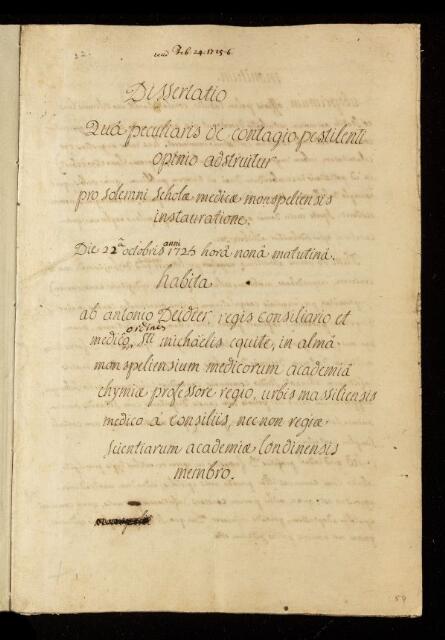 32.
read Feb 24. 1725-6
Dissertatio
Quâ peculiaris de contagio pestilenti
opinio adstruitur
pro solemni scholæ medicæ monspeliensis
instauratione.
Die 22â octobris anni 1725 horâ nonâ matutinâ.
habita
ab antonio Deidier, regis consiliario et
medico, ordinis Sti michaelis equite, in almâ
monspeliensium medicorum academiâ
chymiæ professore regio, urbis massiliensis
medico à consiliis, necnon regiæ
scientiarum academiæ londinensis
membro.
59